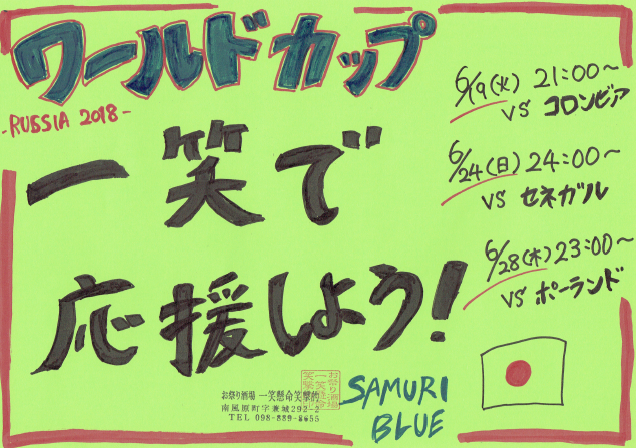 ワールドカップ
-RUSSIA 2018-
一笑で
応援しよう!
6/19(火) 21:00～
VS コロンビア
6/24(日) 24:00～
VS セネガル
6/28(木) 23:00～
VS ポーランド
SAMURI
BLUE
お祭り酒場 一笑懸命笑撃的
南風原町字兼城292-2
TEL 098-889-8655